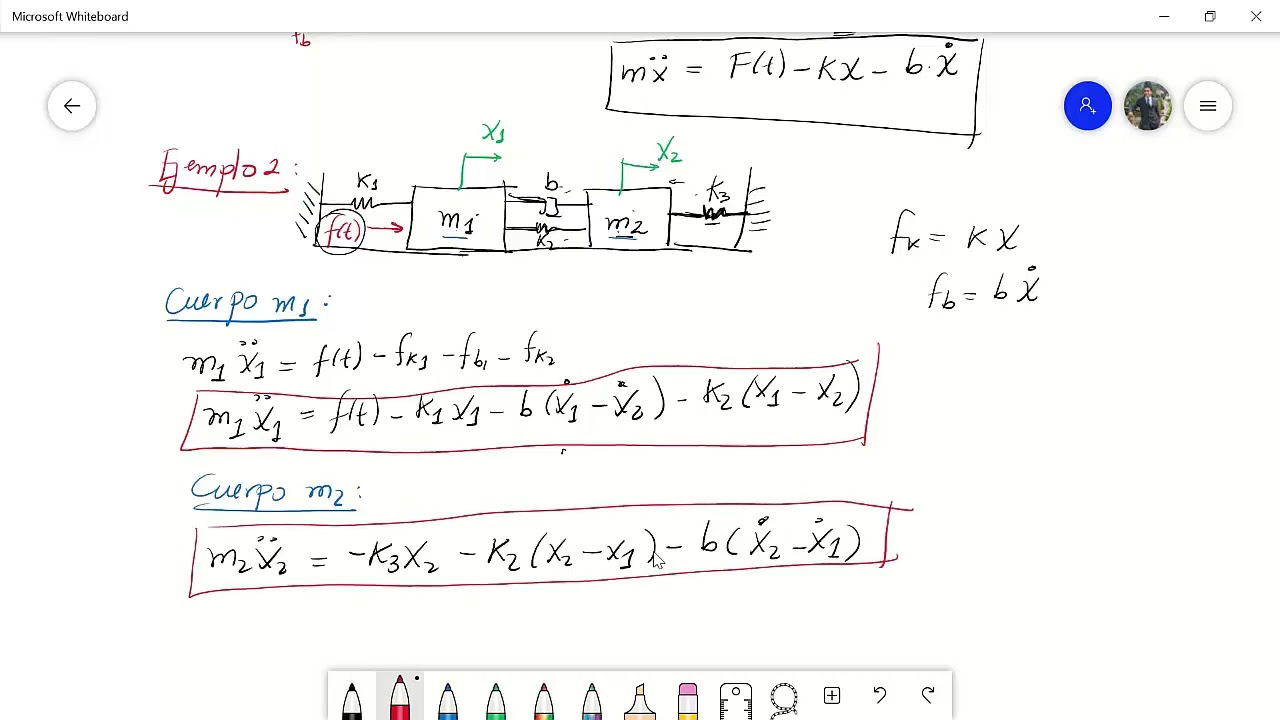 Microsoft Whiteboard
fb
mẍ = F(t) - Kx - b·ẋ
Ejemplo 2:
x1
x2
K1
b
K3
f(t)
m1
K2
m2
fk = K x
fb = b ẋ
Cuerpo m1:
m1 ẍ1 = f(t) - fK1 - fb1 - fK2
m1 ẍ1 = f(t) - K1 x1 - b(ẋ1 - ẋ2) - K2(x1 - x2)
Cuerpo m2:
m2 ẍ2 = -K3 x2 - K2(x2 - x1) - b(ẋ2 - ẋ1)